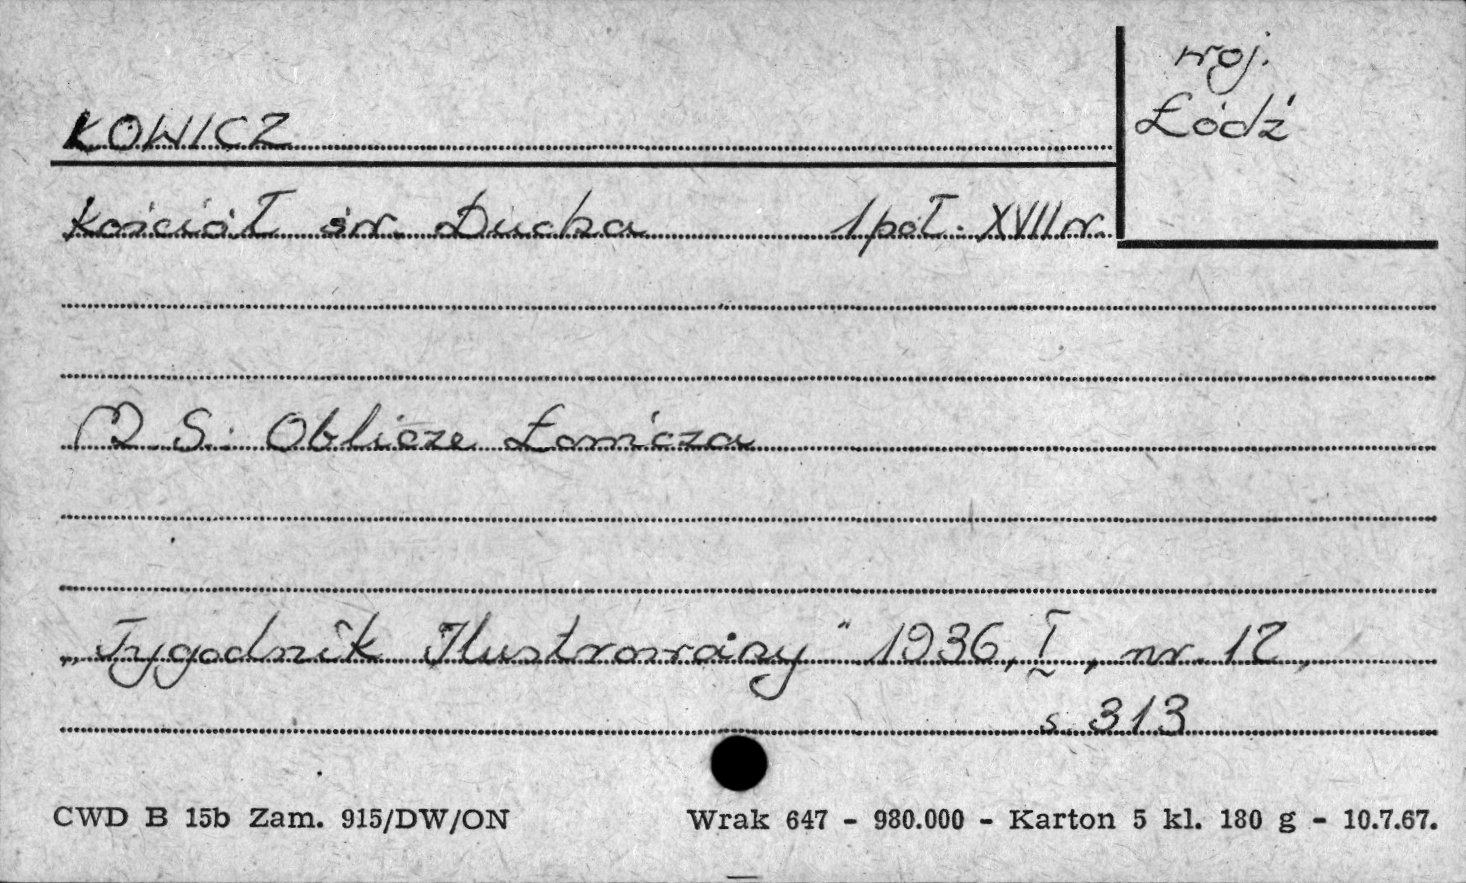 woj.
Łódź
ŁOWICZ
Kościół św. Ducha 1 poł. XVII w.
M. S.: Oblicze Łowicza
„Tygodnik Ilustrowany" 1936, I, nr. 12,
s. 313
CWD B 15b Zam. 915/DW/ON Wrak 647 - 980.000 - Karton 5 kl. 180 g - 10.7.67.